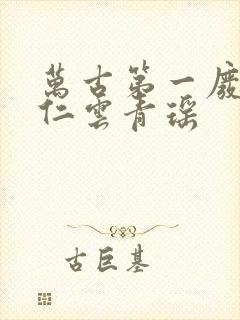 萬古第一廢
仁雲青瑶
古巨基